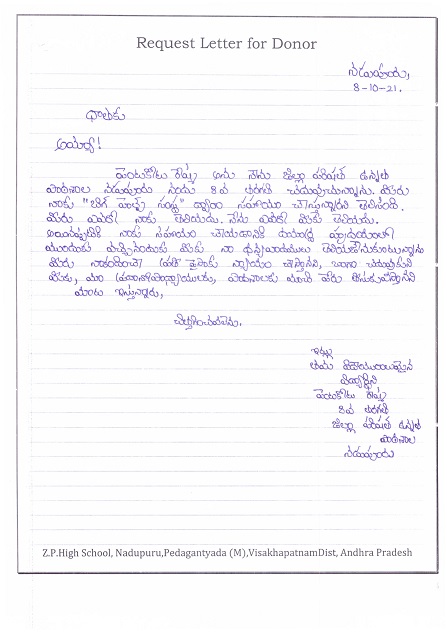 Request Letter for Donor
నడుపూరు,
8-10-21.
దాతకు
అయ్యా!
పెంటకోట రమ్య అను నేను జిల్లా పరిషత్ ఉన్నత
పాఠశాల నడుపూరు నందు 8వ తరగతి చదువుచున్నాను. మీరు
నాకు "బిగ్ హెల్ప్ సంస్థ" ద్వారా సహాయం చేస్తున్నారని తెలిసింది.
మీరు ఎవరో నాకు తెలియదు. నేను ఎవరో మీకు తెలియదు.
అయినప్పటికీ నాకు సహాయం చేయడానికి దయార్ధ హృదయంతో
ముందుకు వచ్చినందుకు మీకు నా ధన్యవాదములు తెలియజేసుకుంటున్నాను
మీరు నాకందించే ప్రతి పైసాకు న్యాయం చేస్తానని, బాగా చదువుకుని
మీకు, మా ప్రధానోపాధ్యాయులకు, పాఠశాలకు మంచి పేరు తీసుకువస్తానని
మాట ఇస్తున్నాను,
చిత్తగించవలెను.
ఇట్లు
తమ విధేయురాలైన
విద్యార్థిని
పెంటకోట రమ్య
8వ తరగతి
జిల్లా పరిషత్ ఉన్నత
పాఠశాల
నడుపూరు
Z.P.High School, Nadupuru,Pedagantyada (M),VisakhapatnamDist, Andhra Pradesh